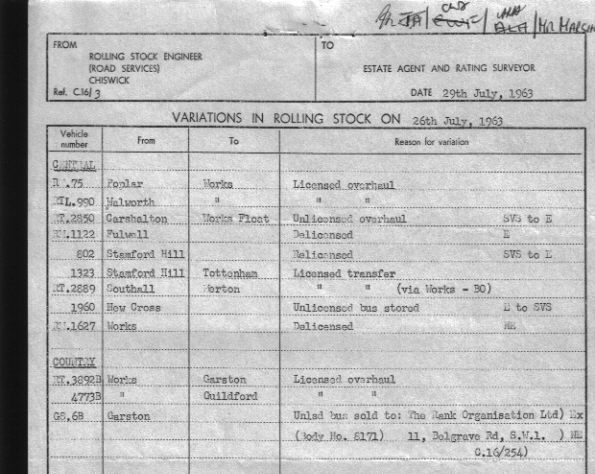 MR MARSH
FROM
ROLLING STOCK ENGINEER
(ROAD SERVICES)
CHISWICK
Ref. C.16/3
TO
ESTATE AGENT AND RATING SURVEYOR
DATE 29th July, 1963
VARIATIONS IN ROLLING STOCK ON 26th July, 1963
Vehicle number From To Reason for variation
CENTRAL
.75 Poplar Works Licensed overhaul
.990 Walworth " " "
.2850 Carshalton Works Float Unlicensed overhaul SVS to E
.1122 Fulwell Delicensed E
802 Stamford Hill Relicensed SVS to E
1323 Stamford Hill Tottenham Licensed transfer
.2889 Southall Merton " " (via Works - BO)
1960 New Cross Unlicensed bus stored E to SVS
.1627 Works Delicensed NE
COUNTRY
.3892B Works Garston Licensed overhaul
4773B " Guildford " "
GS.6B Garston Unlsd bus sold to: The Rank Organisation Ltd) Ex
(Body No. 8171) 11, Belgrave Rd, S.W.1. ) NE
C.16/254)